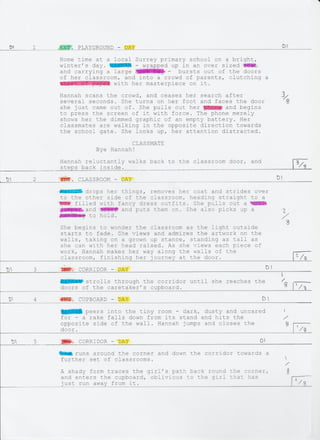 D1 1 EXT. PLAYGROUND - DAY D1
Home time at a local Surrey primary school on a bright,
winter's day. - wrapped up in an over sized
and carrying a large - bursts out of the doors
of her classroom, and into a crowd of parents, clutching a
with her masterpiece on it.
Hannah scans the crowd, and ceases her search after
several seconds. She turns on her foot and faces the door
she just came out of. She pulls out her and begins
to press the screen of it with force. The phone merely
shows her the dimmed graphic of an empty battery. Her
classmates are walking in the opposite direction towards
the school gate. She looks up, her attention distracted.
CLASSMATE
Bye Hannah!
Hannah reluctantly walks back to the classroom door, and
steps back inside. 3/8
D1 2 INT. CLASSROOM - DAY D1
drops her things, removes her coat and strides over
to the other side of the classroom, heading straight to a
filled with fancy dress outfits. She pulls out a
and and puts them on. She also picks up a
to hold.
She begins to wonder the classroom as the light outside
starts to fade. She views and admires the artwork on the
walls, taking on a grown up stance, standing as tall as
she can with her head raised. As she views each piece of
work, Hannah makes her way along the walls of the
classroom, finishing her journey at the door.
D1 3 INT. CORRIDOR - DAY D1
strolls through the corridor until she reaches the
doors of the caretaker's cupboard. 1/8
D1 4 INT. CUPBOARD - DAY D1
peers into the tiny room - dark, dusty and uncared
for - a rake falls down from its stand and hits the
opposite side of the wall. Hannah jumps and closes the
door. 1/8
D1 5 INT. CORRIDOR - DAY D1
runs around the corner and down the corridor towards a
further set of classrooms.
A shady form traces the girl's path back round the corner,
and enters the cupboard, oblivious to the girl that has
just run away from it. 1/8